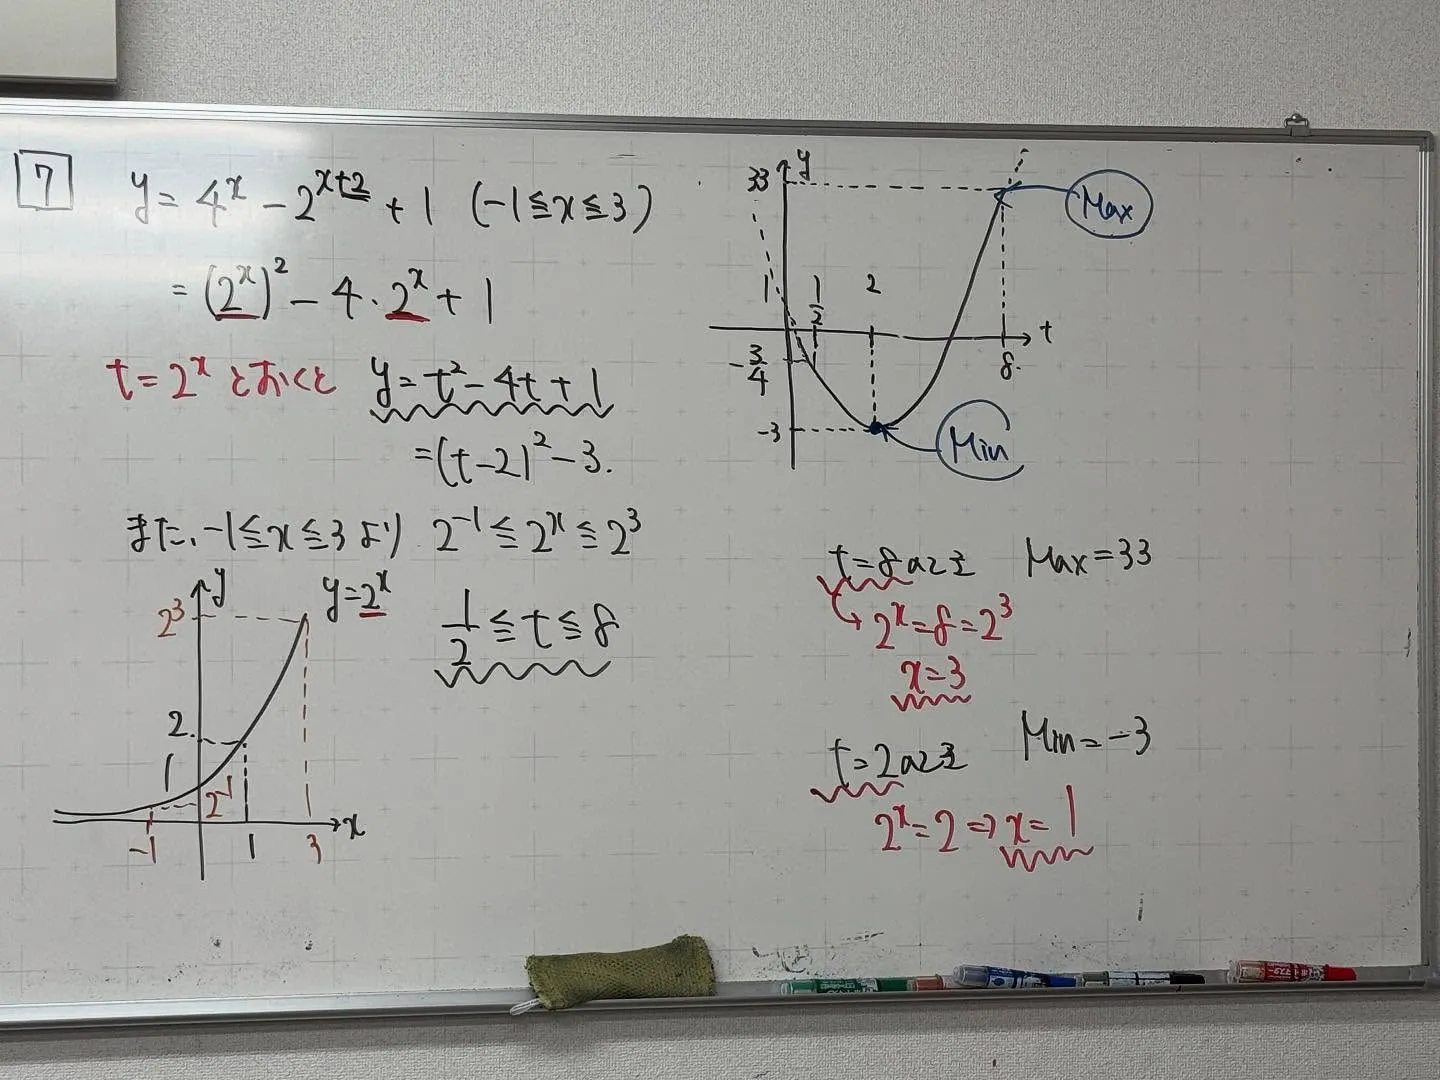 7
y = 4^x - 2^{x+2} + 1 (-1 ≦ x ≦ 3)
= (2^x)^2 - 4・2^x + 1
t = 2^x とおくと y = t^2 - 4t + 1
= (t-2)^2 - 3.
また、-1 ≦ x ≦ 3 より 2^{-1} ≦ 2^x ≦ 2^3
1/2 ≦ t ≦ 8
y
y = 2^x
2^3
2
1
2^{-1}
-1
1
3
x
y
33
Max
1
1/2
2
t
8
-3/4
-3
Min
t = 8のとき Max = 33
2^x = 8 = 2^3
x = 3
t = 2のとき Min = -3
2^x = 2 ⇒ x = 1